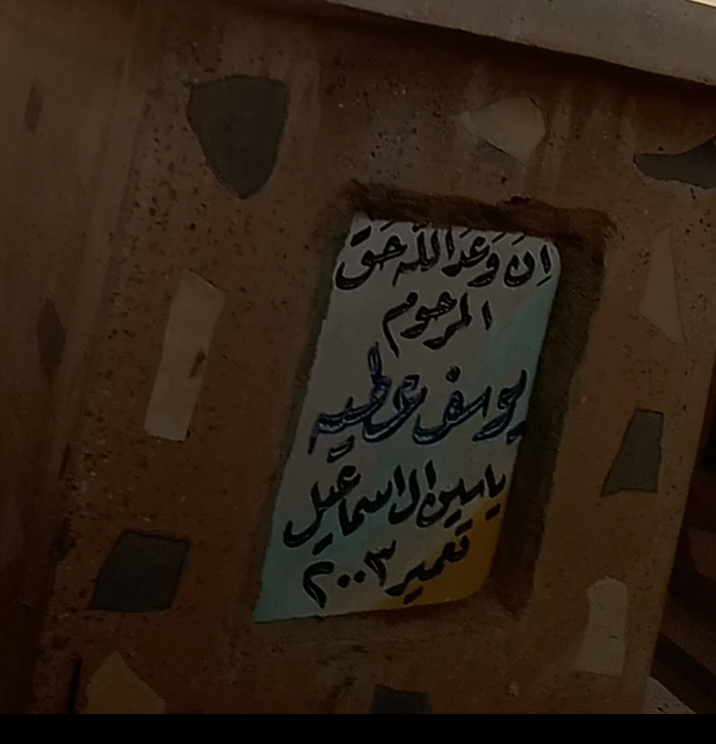 اِنَ وَعَدَاللّه حَقَ
المرحوم
يوسف عطيه
ياسين ال اسماعيل
تعمير ٢٠٠٣